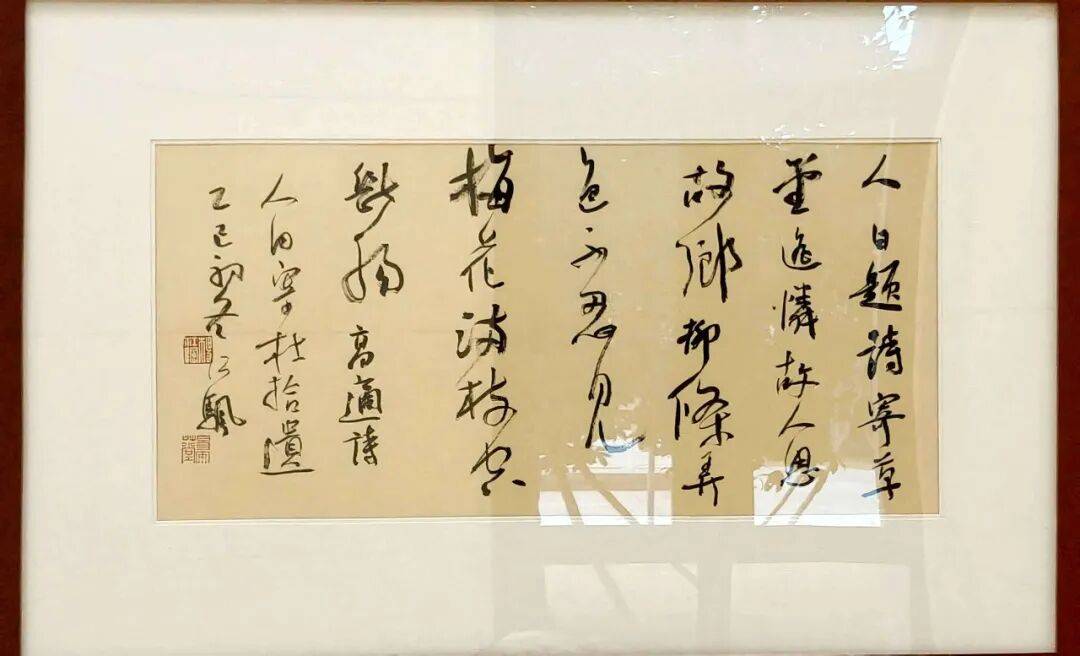 人日題詩寄草
堂遙憐故人思
故鄉柳條弄
色不忍見
梅花滿枝空
斷腸 高適詩
人日寄杜拾遺
乙巳初冬 江飄